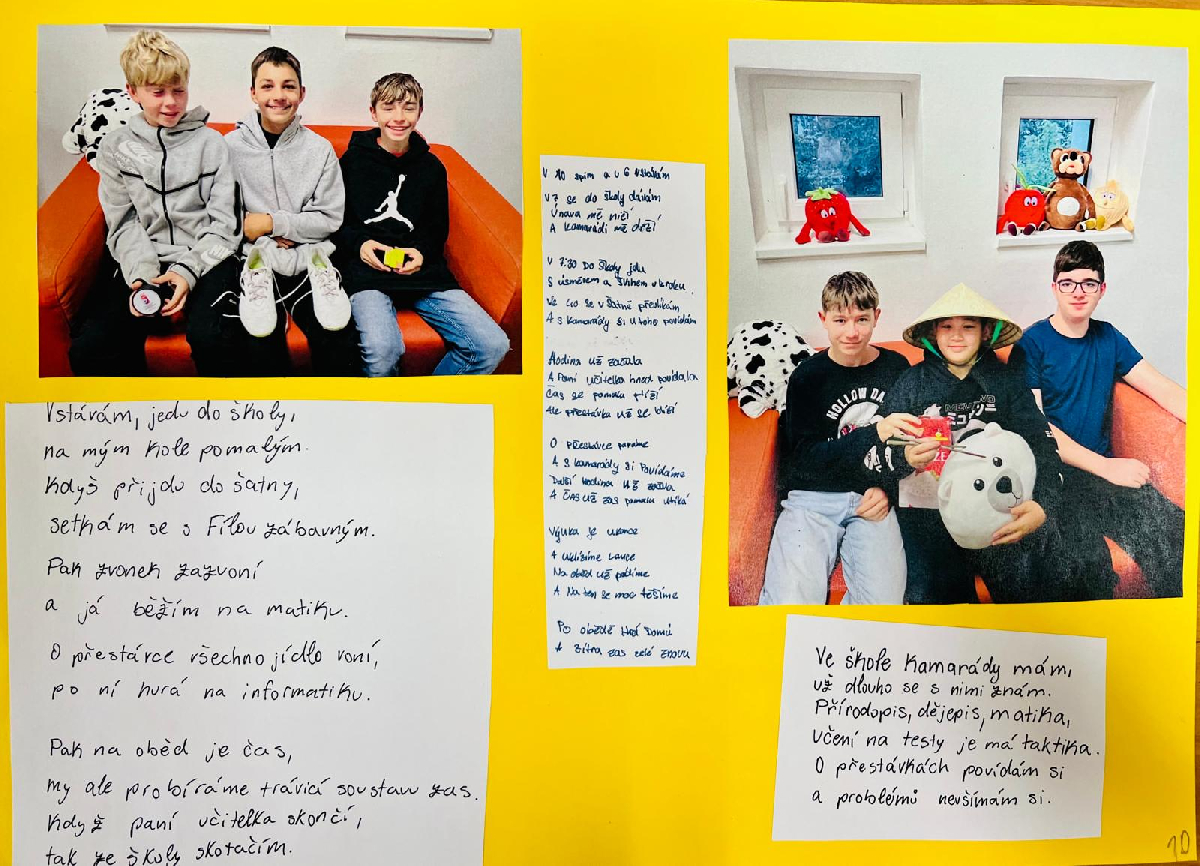 Vstávám, jedu do školy,
na mým kole pomalým.
Když přijdu do šatny,
setkám se s Fílou zábavným.
Pak zvonek zazvoní
a já běžím na matiku.
O přestávce všechno jídlo voní,
po ní hurá na informatiku.
Pak na oběd je čas,
my ale probíráme trávicí soustavu zas.
Když paní učitelka skončí,
tak ze školy skotačím.
V 10 spím a v 6 vstávám
V 7 se do školy dávám
Únava mě ničí
A kamarádi mě
V 7:30 Do školy jdu
S úsměvem a švihem v kroku.
Ve se v šatně
A s kamarády si u toho povídám
Hodina už začala
A Paní učitelka hned povídala
Čas se pomalu
Ale přestávka už se blíží
O přestávce
A s kamarády si Povídáme
Další hodina už začala
A Čas už zas pomalu utíká
Výuka je u konce
A
Na oběd už
A Na ten se moc těšíme
Po obědě Domů
A zítra zas celé znovu
HOLLOW
Ve škole kamarády mám,
už dlouho se s nimi znám.
Přírodopis, dějepis, matika,
učení na testy je má taktika.
O přestávkách povídám si
a problémů nevšímám si.
10